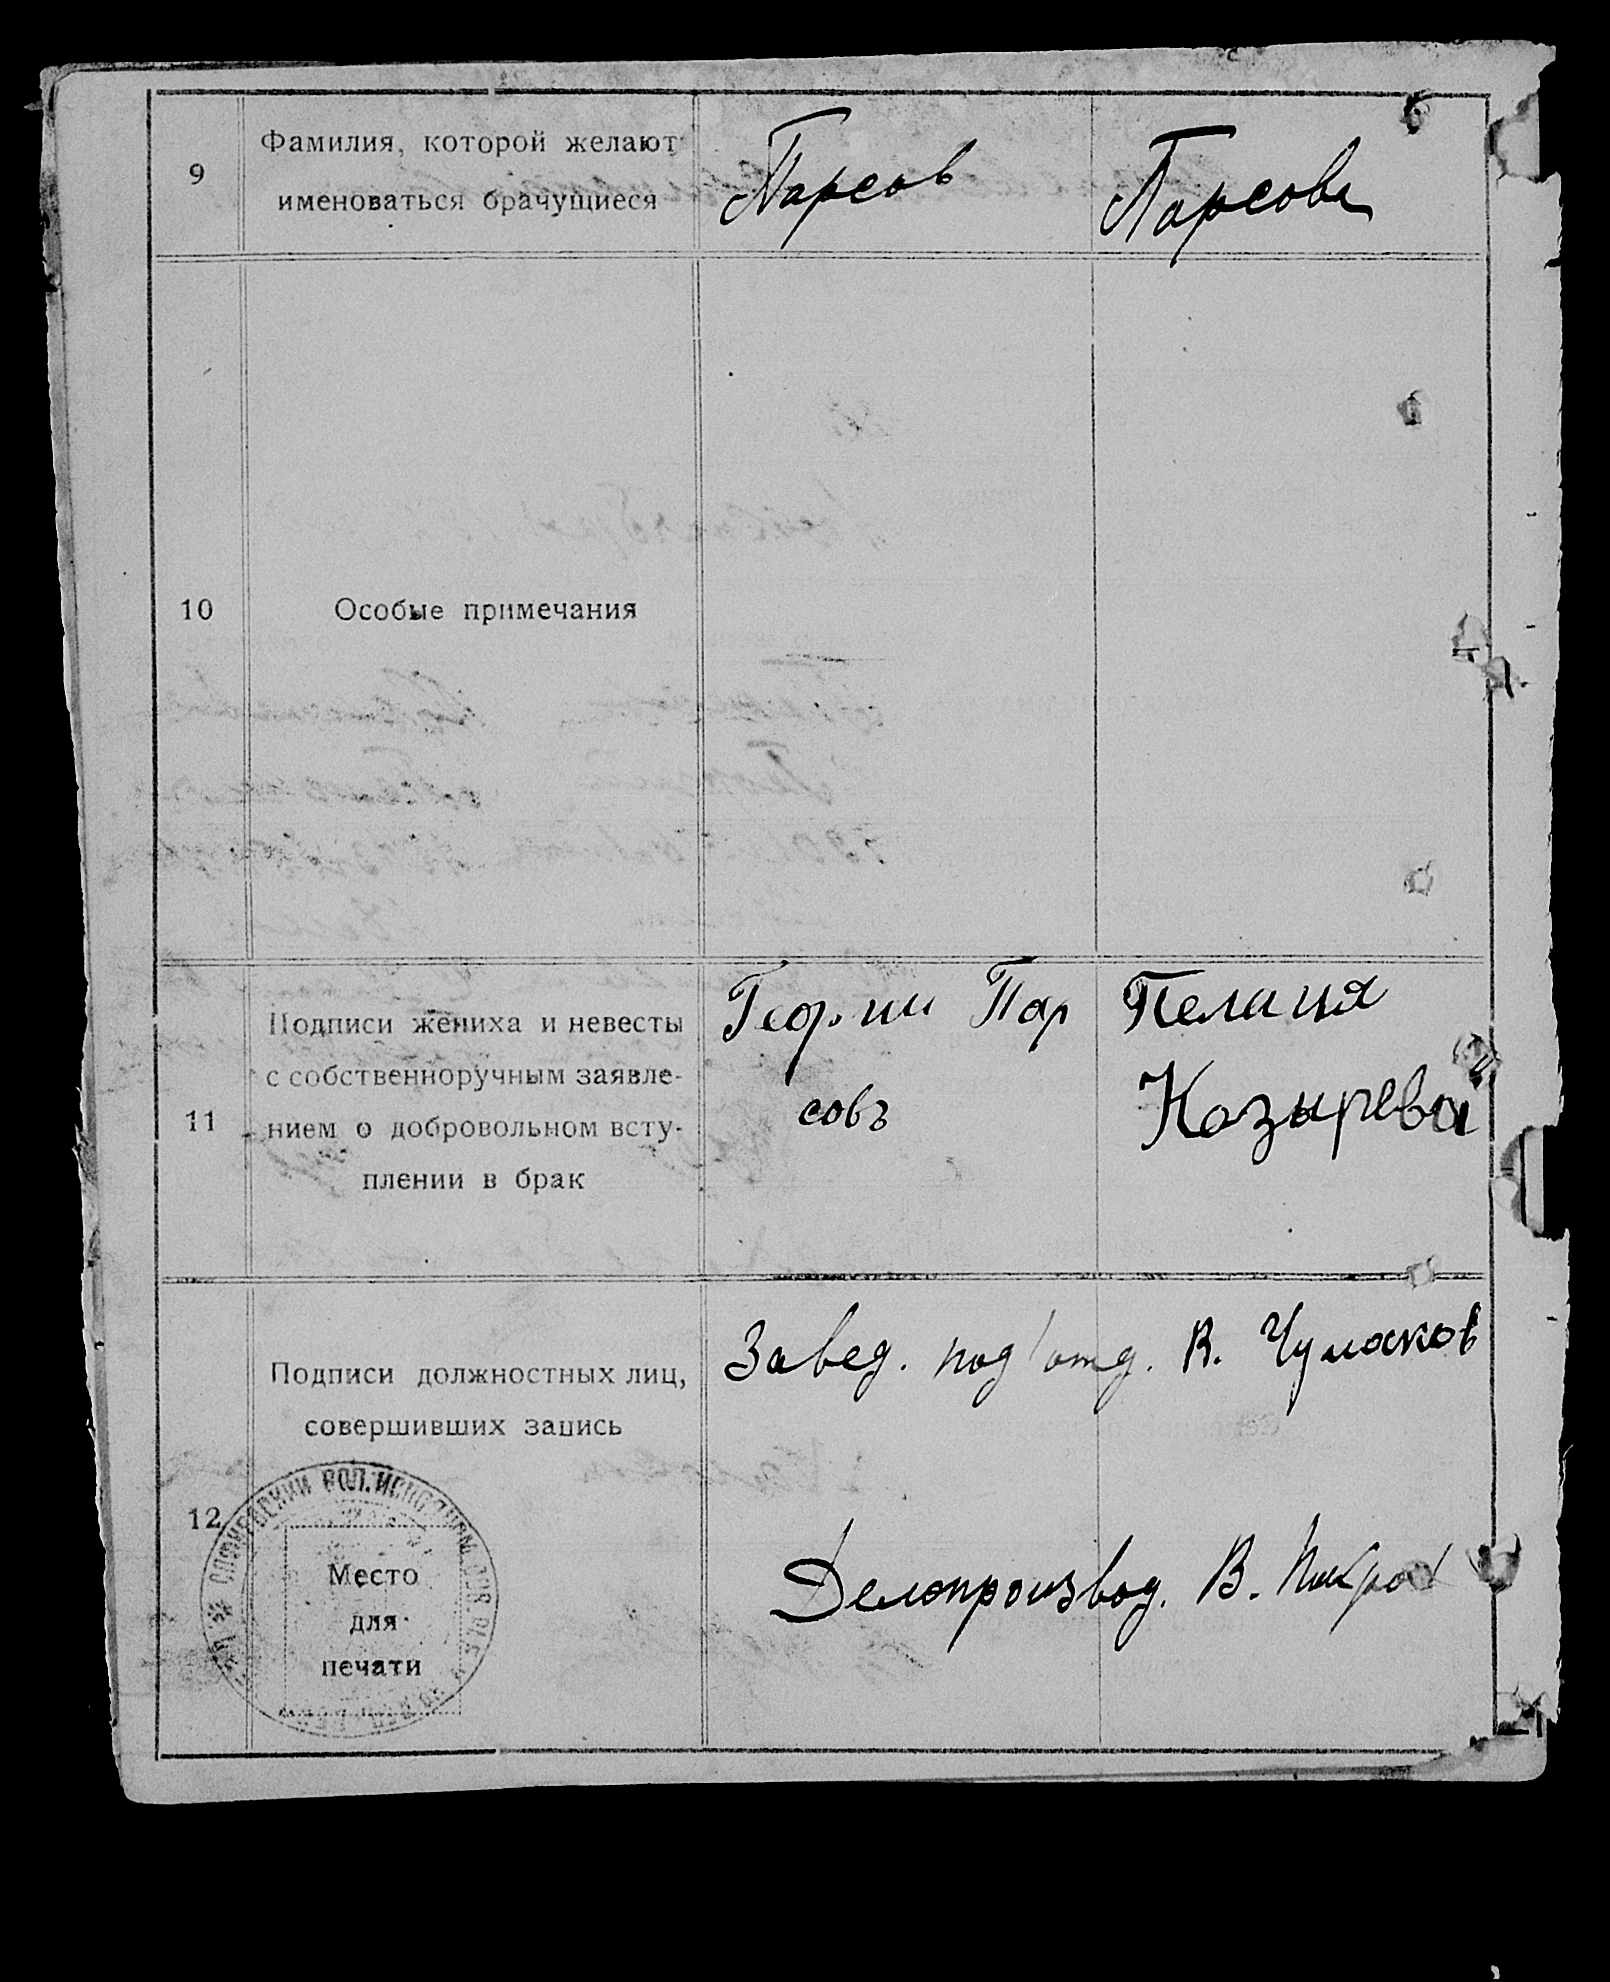 9
Фамилия, которой желают
именоваться брачущиеся
Парсов
Парсова
10
Особые примечания
11
Подписи жениха и невесты
с собственноручным заявле-
нием о добровольном всту-
плении в брак
Георгии Пар
совъ
Пелагия
Козырева
12
Подписи должностных лиц,
совершивших запись
Место
для
печати
Завед. под'отд. В. Чумаков
Делопроизвод. В.